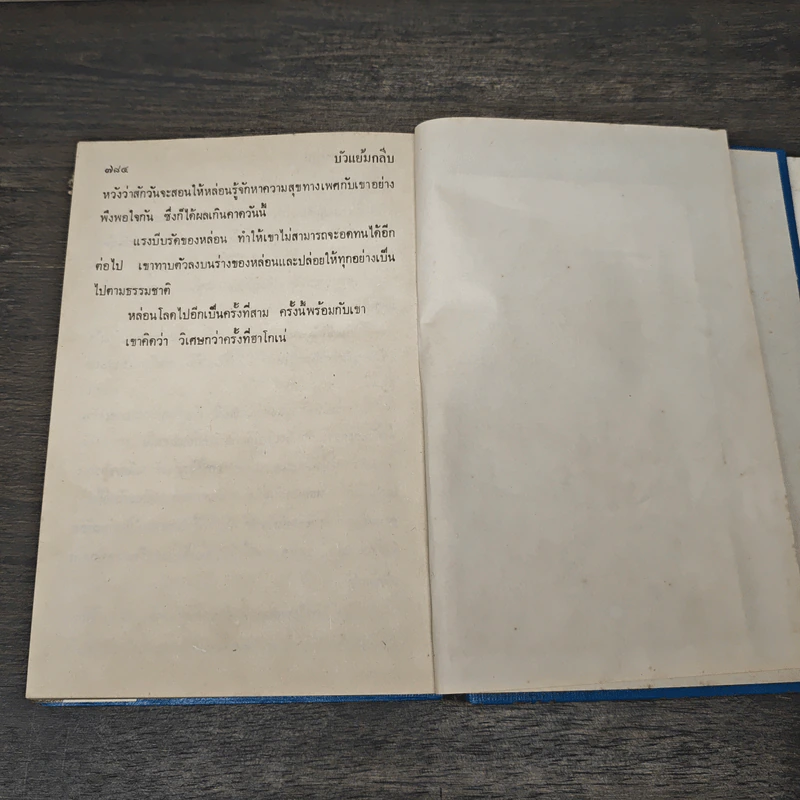 ๗๘๔ บัวแย้มกลีบ
หวังว่าสักวันจะสอนให้หล่อนรู้จักหาความสุขทางเพศกับเขาอย่าง
พึงพอใจกัน ซึ่งก็ได้ผลเกินคาดวันนี้
แรงบีบรัดของหล่อน ทำให้เขาไม่สามารถจะอดทนได้อีก
ต่อไป เขาทาบตัวลงบนร่างของหล่อนและปล่อยให้ทุกอย่างเป็น
ไปตามธรรมชาติ
หล่อนโลดไปอีกเป็นครั้งที่สาม ครั้งนี้พร้อมกับเขา
เขาคิดว่า วิเศษกว่าครั้งที่ฮาโกเน่